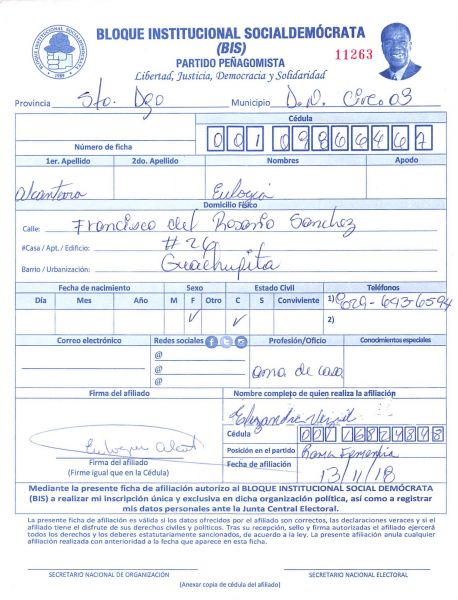 BLOQUE INSTITUCIONAL SOCIALDEMÓCRATA
(BIS)
PARTIDO PEÑAGOMISTA
Libertad, Justicia, Democracia y Solidaridad
11263
BLOQUE INSTITUCIONAL SOCIALDEMÓCRATA
Provincia Sto. Dgo Municipio D.N. Circ 03
Cédula
Número de ficha
1er. Apellido 2do. Apellido Nombres Apodo
Alcantara Eulogia
Domicilio Físico
Calle: Francisco del Rosario Sanchez
#Casa / Apt. / Edificio: #26
Barrio / Urbanización: Guachupita
Fecha de nacimiento Sexo Estado Civil Teléfonos
Día Mes Año M F Otro C S Conviviente 1)
2)
Correo electrónico Redes sociales Profesión/Oficio Conodmientos especiales
@
@
@
ama de casa
Firma del afiliado Nombre completo de quien realiza la afiliación
Cédula
Posición en el partido Rama Femenina
Fecha de afiliación 13/11/18
Firma del afiliado
(Firme igual que en la Cédula)
Mediante la presente ficha de afiliación autorizo al BLOQUE INSTITUCIONAL SOCIAL DEMÓCRATA
(BIS) a realizar mi inscripción única y exclusiva en dicha organización política, así como a registrar
mis datos personales ante la Junta Central Electoral.
La presente ficha de afiliación es válida si los datos ofrecidos por el afiliado son correctos, las declaraciones veraces y si el
afiliado tiene el disfrute de sus derechos civiles y políticos. Tras su recepción, sello y firma autorizadas el afiliado ejercerá
todos los derechos y los deberes estatutariamente sancionados, de acuerdo a la ley. La presente afiliación anula cualquier
afiliación realizada con anterioridad a la fecha que aparece en esta ficha.
SECRETARIO NACIONAL DE ORGANIZACIÓN SECRETARIO NACIONAL ELECTORAL
(Anexar copia de cédula del afiliado)